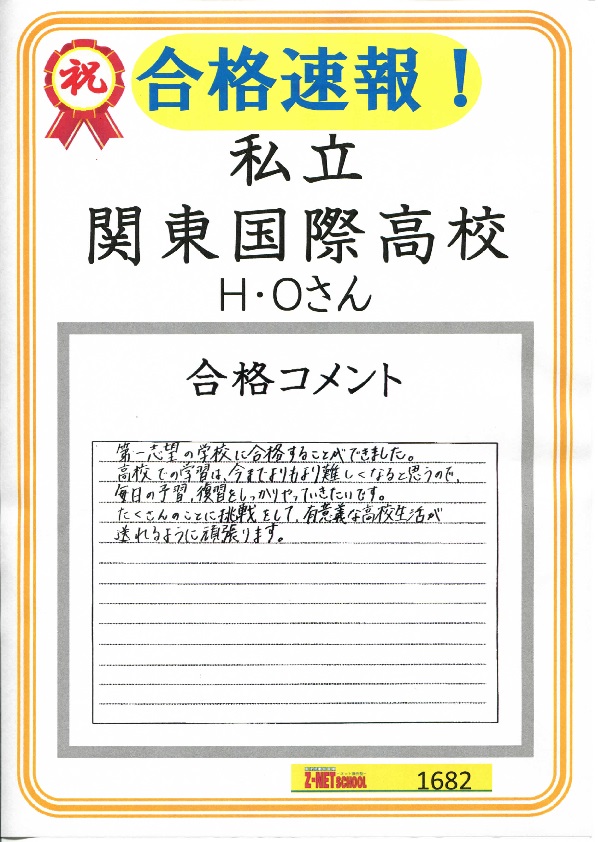 祝
合格速報！
私立
関東国際高校
H・Oさん
合格コメント
第一志望の学校に合格することができました。
高校での学習は、今までよりもより難しくなると思うので、
毎日の予習、復習をしっかりやっていきたいです。
たくさんのことに挑戦をして、有意義な高校生活が
送れるように頑張ります。
Z-NET SCHOOL
1682